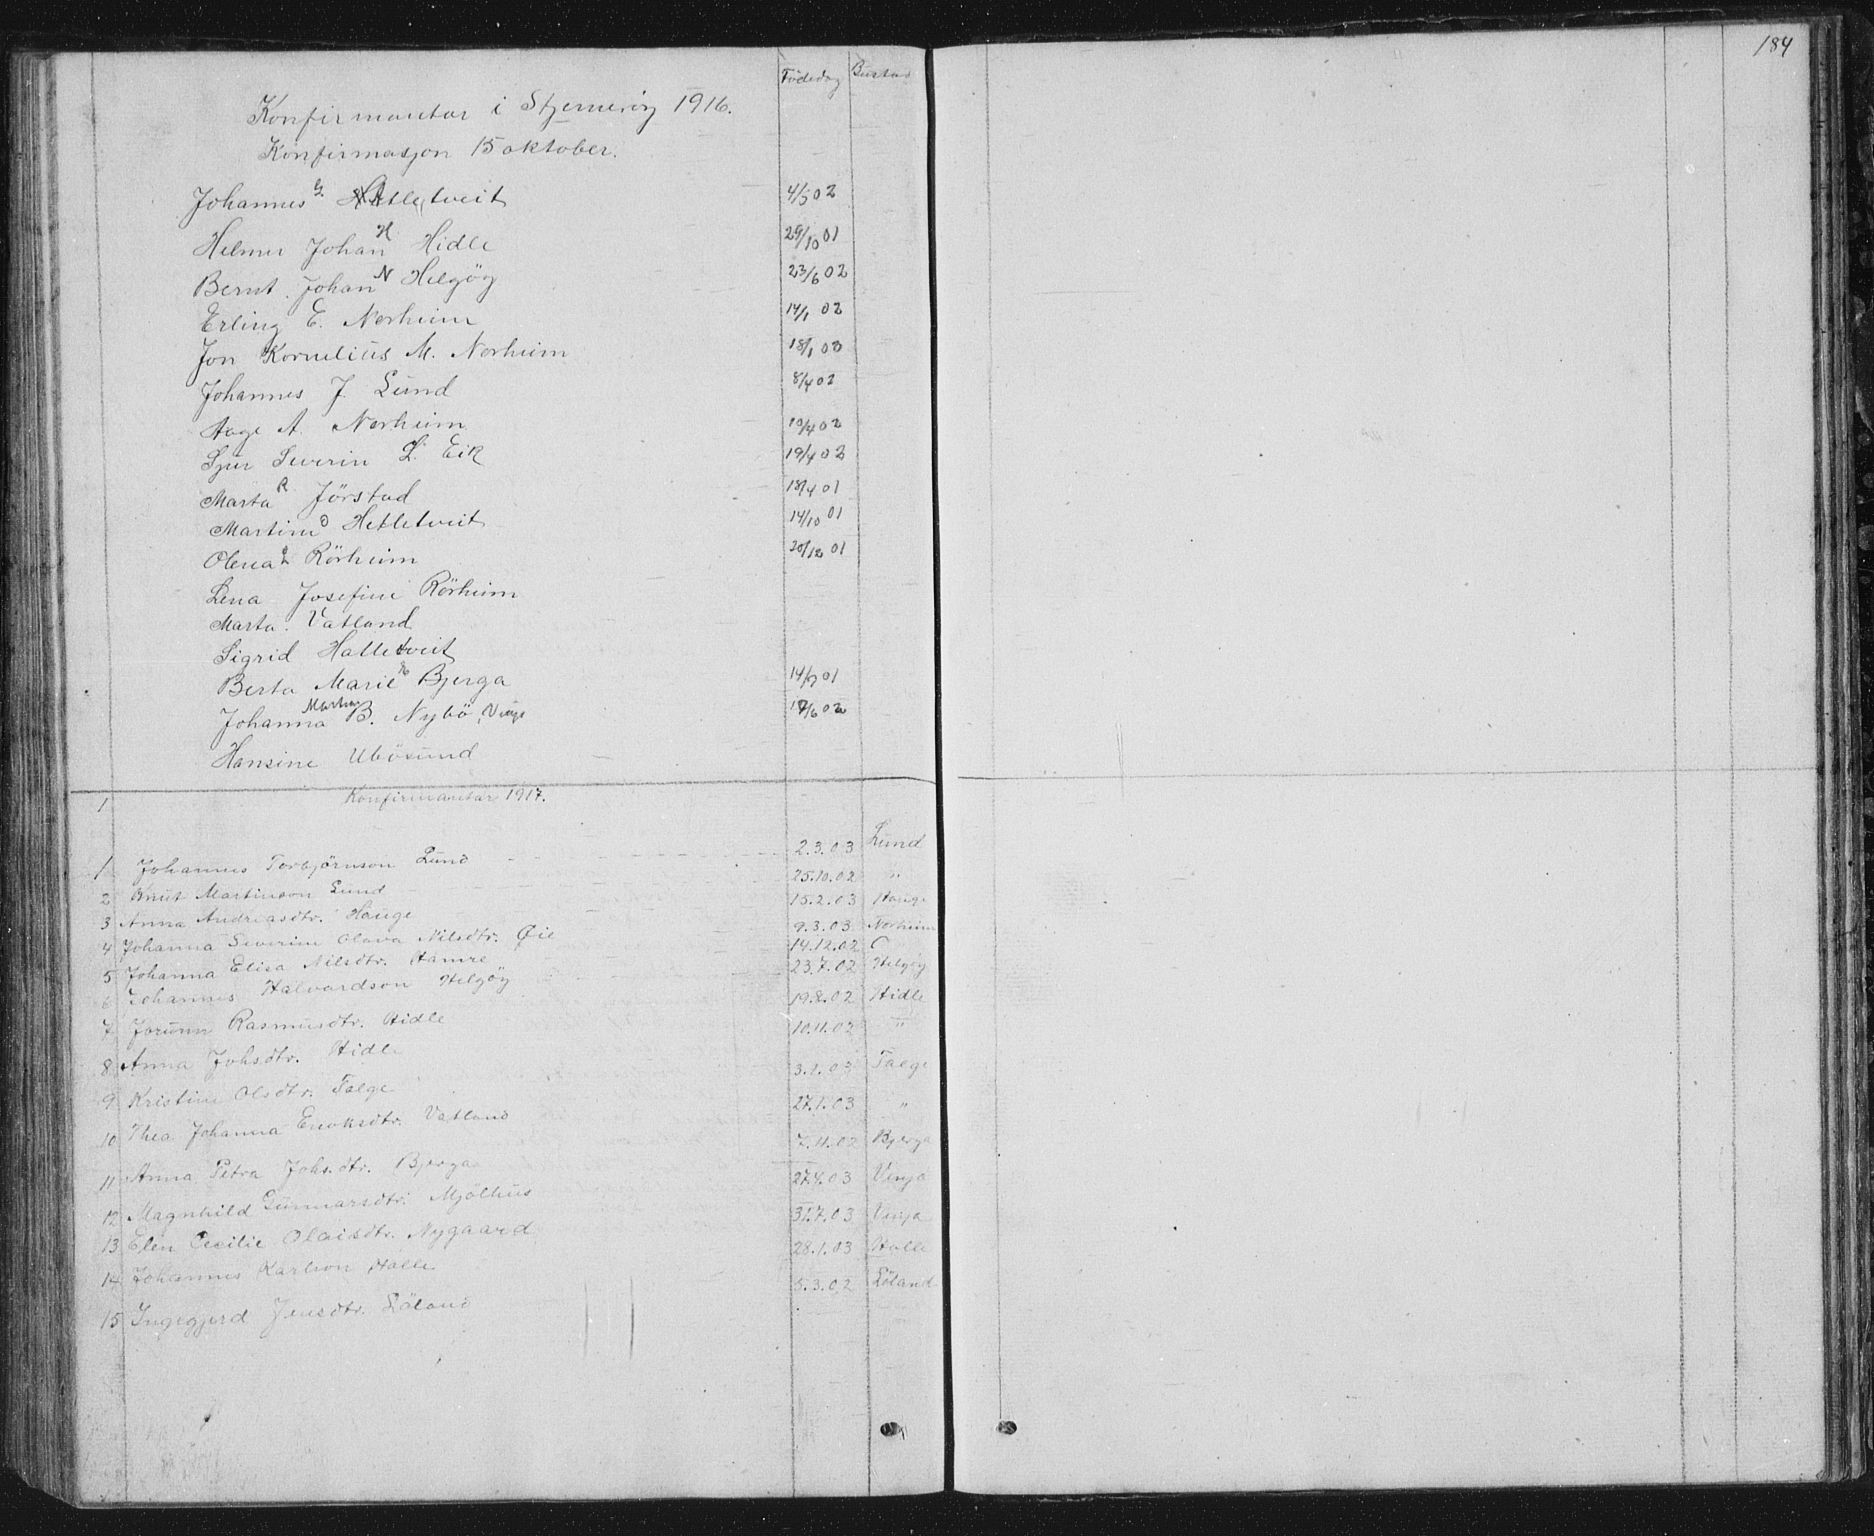 184
Fødedag Bustad
Konfirmantar i Stjernerøy 1916.
Konfirmasjon 15 oktober.
Johannes G. Hetletveit 4/5 02
Helmer Johan H Hidle 29/10 01
Bernt Johan N Helgöy 23/6 02
Erling E. Norheim 14/1 02
Jon Kornelius M. Norheim 18/1 02
Johannes J. Lund 8/4 02
Aage A. Norheim 10/4 02
Sjur Severin L. Eik 19/4 02
Marta R Jörstad 18/4 01
Martine O Hetletveit 14/10 01
Olena Rörheim 20/12 01
Lena Josefine Rörheim
Marta. Vatland
Sigrid Halletveit
Berta Marie Bjerga 14/9 01
Johanna Martine B. Nybö, Vinje 17/6 02
Hansine Ubösund
1 Konfirmantar 1917.
1 Johannes Torbjörnson Lund 2.3.03 Lund
2 Knut Martinson Lund 25.10.02 "
3 Anna Andreasdtr. Hauge 15.2.03 Hauge
4 Johanna Severine Olava Nilsdtr. Øie 9.3.03 Norheim
5 Johanna Elisa Nilsdtr. Hamre 14.12.02
6 Johannes Halvardson Helgøy 23.7.02 Helgøy
7 Jorunn Rasmusdtr. Hidle 19.8.02 Hidle
8 Anna Johsdtr. Hidle 10.11.02 "
9 Kristine Olsdtr. Talge 3.1.03 Talge
10 Thea Johanna Enoksdtr. Vatland 27.1.03 "
11 Anna Petra Johs.dtr. Bjerga 7.11.02 Bjerga
12 Magnhild Gunnarsdtr. Mjölhus 27.4.03 Vinja
13 Elen Cecilie Olaisdtr. Nygaard 31.7.03 Vinja
14 Johannes Karlson Halle 28.1.03 Halle
15 Ingegjerd Jensdtr. Löland 5.3.02 Löland